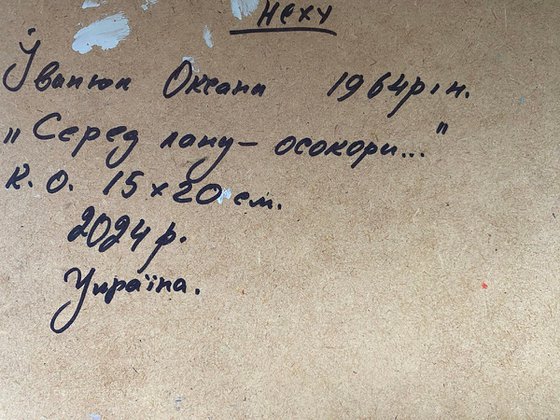 Неху
Іванюк Оксана 1964р.н.
„Серед лану – осокори..."
к.о. 15 х 20 см.
2024 р.
Україна.